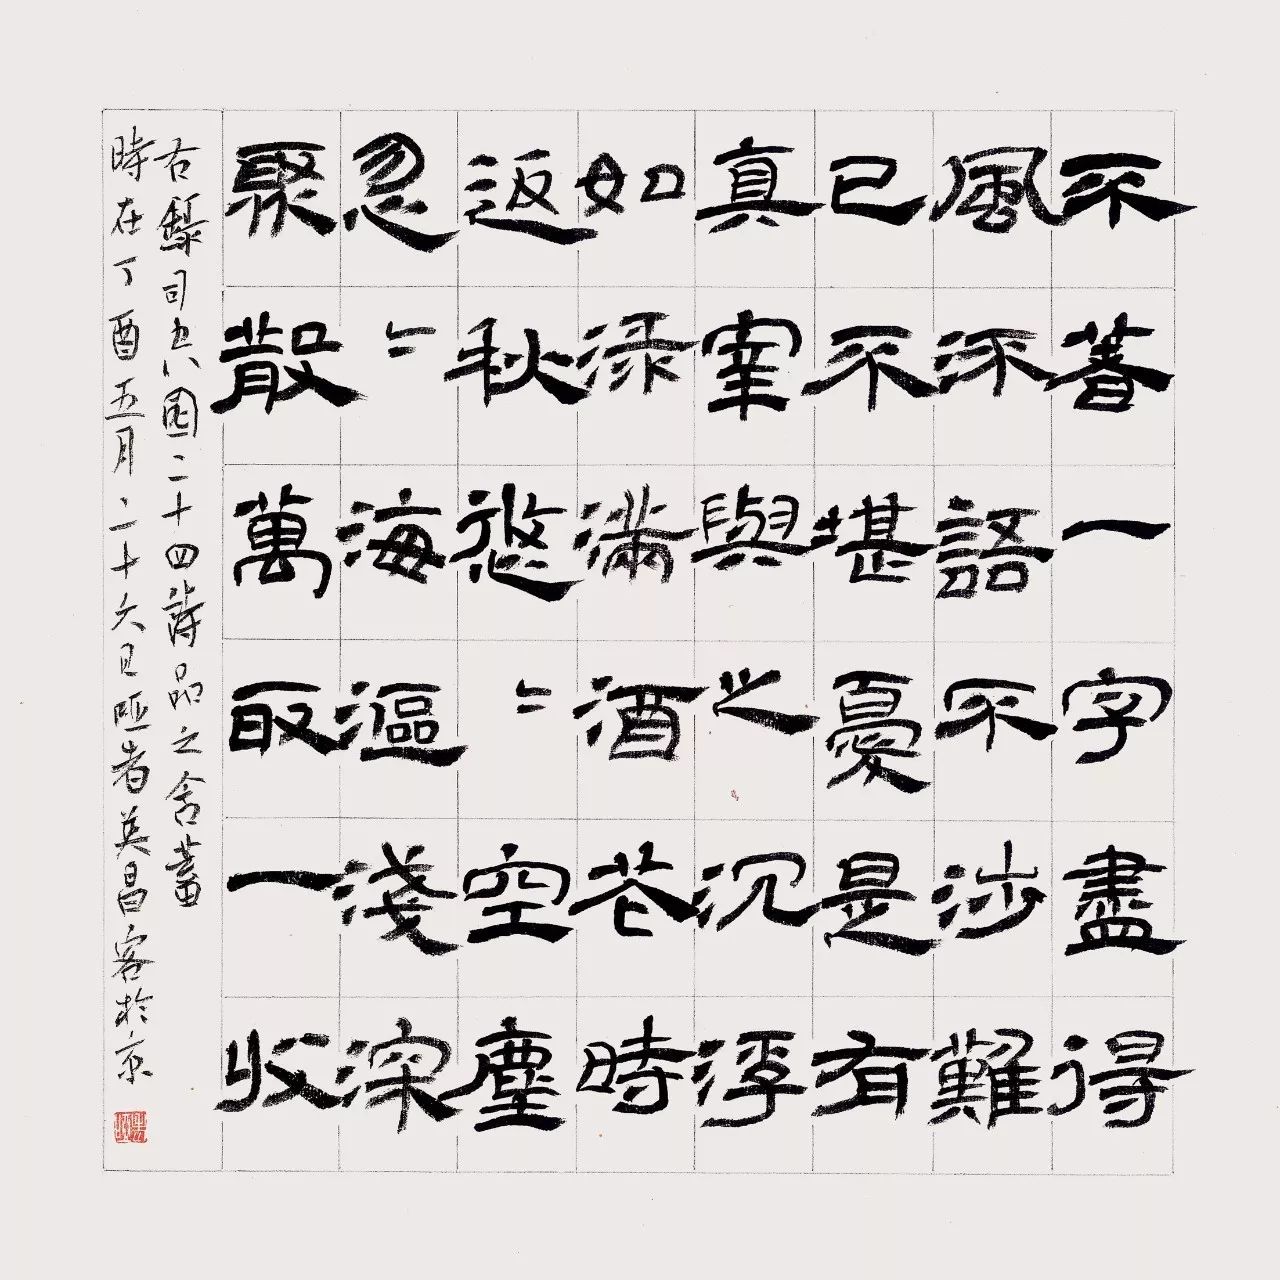 不著一字盡得
風流語不涉難
已不堪憂是有
真宰與之沉浮
如渌滿酒花時
返秋悠〻空塵
忽〻海漚淺深
聚散萬取一收
右錄司空圖二十四詩品之含蓄
時在丁酉五月二十六日啞者英昌客於京